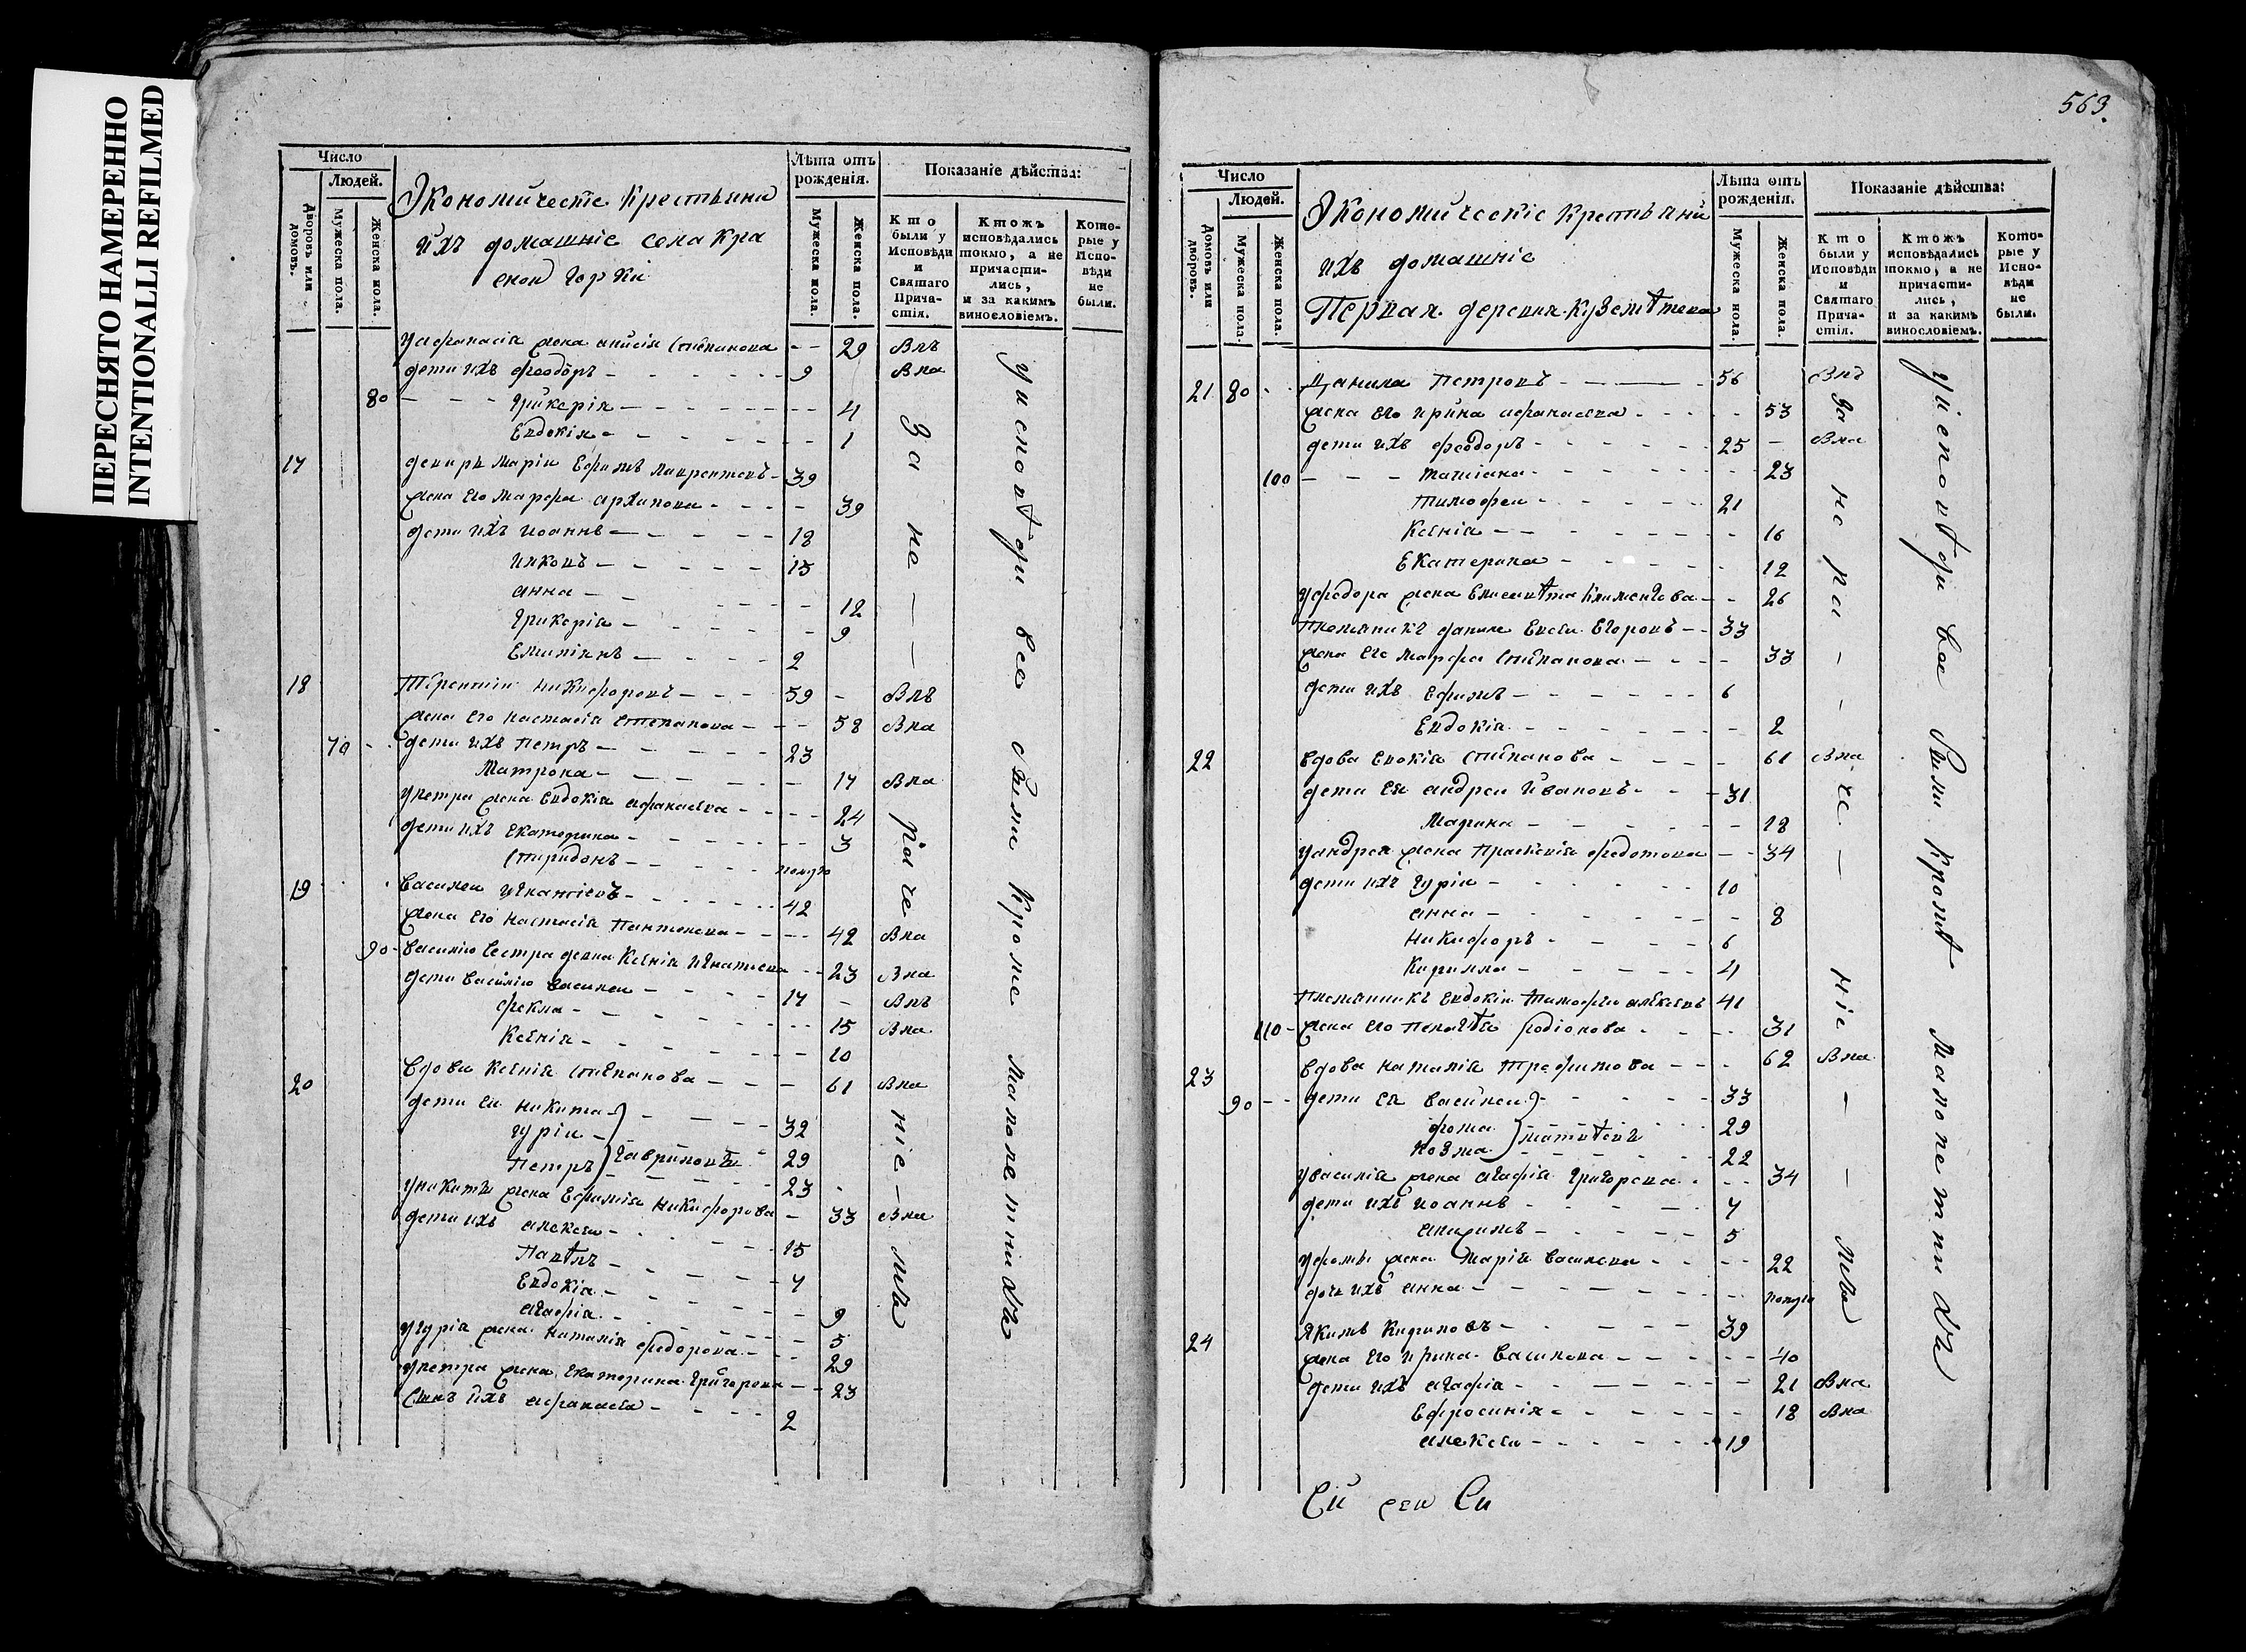 ПЕРЕСНЯТО НАМЕРЕННО
INTENTIONALLI REFILMED
563.
Число
Людей.
Дворовъ или домовъ.
Мужеска пола.
Женска пола.
Экономическіе крестьяни
ихъ домашніе села Кра
снои горки
Лѣта отъ рожденія.
Мужеска пола.
Женска пола.
Показаніе дѣйства:
Кто были у Исповѣди и Святаго Прича-стія.
Ктожъ исповѣдались токмо, а не причасти-лись, и за какимъ винословіемъ.
Кото-рые у Испо-вѣди не были.
У афанасія жена анисія степанова - - 29 Влъ
дети ихъ феодоръ - - 9 Вла
80 - - - гликерія - - 4
Евдокія - - 1
17 Ефимъ лаврентевъ - 39
жена его марфа архипова - - 39
дети ихъ иоаннъ - - 18
иковъ - - 13
анна - - 12
гликерія - - 9
Емиліянъ - - 2
18 Терентіи никифоровъ - - 59 - Влъ
жена его настасія степанова - - 58 Вла
70 - дети ихъ петръ - - 23
Матрона - - 17 Вла
у петра жена евдокія афанасева - - 24
дети ихъ екатерина - - 3
спиридонъ - - полуго
19 василеи игнатіевъ - - 42
жена его настасія пантелеева - - 42 Вла
90 - василію сестра девка ксенія игнатева - - 23 Вла
дети василію василеи - - 17 - Влъ
фекла - - 15 Вла
Ксенія - - 10
20 вдова ксенія степанова - - 61 Вла
дети ея никита - - 32
гуріи - - 29
петръ - - 23
гавриловы
у никиты жена Ефимія никифорова - 33 Вла
дети ихъ алексеи - - 15
Павѣлъ - - 7
Евдокія - - 9
агафія - - 5
у гурія жена наталія федорова - - 29
у петра жена екатерина григорева - - 23
сынъ ихъ афанасеи - - 2
За не раче ніе мъ
У исповѣди все были кроме малолетнихъ
Число
Людей.
Домовъ или дворовъ.
Мужеска пола.
Женска пола.
Экономическіе крестьяни
ихъ домашніе
Первая деревня
Лѣта отъ рожденія.
Мужеска пола.
Женска пола.
Показаніе дѣйства:
Кто были у Исповѣди и Святаго Прича-стія.
Ктожъ исповѣдались токмо, а не причасти-лись, и за какимъ винословіемъ.
Кото-рые у Испо-вѣди не были.
21 80 - Данила петровъ - - 56 Влъ
жена его ирина афанасева - - 53
дети ихъ феодоръ - - 25 - Вла
100 - - - татіана - - 23
тимофеи - - 21
Ксенія - - 16
Екатерина - - 12
у федора жена Елисавѣта климентова - - 26
племянникъ данилы Евсеи Егоровъ - - 33
жена его марфа степанова - - 33
дети ихъ Ефимъ - - 6
Евдокія - - 2
22 вдова евдокія степанова - - 61 Вла
дети ея андреи ивановъ - - 31
Марина - - 18
у андрея жена Прасковія федотова - - 34
дети ихъ гуріи - - 10
анна - - 8
никифоръ - - 6
Кирилла - - 4
племянникъ евдокіи тимофеи алексеевъ 41
110 - жена его пелагѣя родіонова - - 31
23 вдова наталія трефилова - - 62 Вла
90 - - дети ея василеи - - 33
фома - - 29
козма - - 22
матвѣевы
у василія жена агафія григорева - - 34
дети ихъ иоаннъ - - 7
акимъ - - 5
у фомы жена марія василева - - 22
дочь ихъ анна - - полуго
24 якимъ кириловъ - - 39
жена его ирина василева - - 40
дети ихъ агафія - - 21 Вла
Ефросинія - - 18 Вла
алексеи - - 19
За не ра че ніе мъ
У исповѣди все были кромѣ малолетнихъ